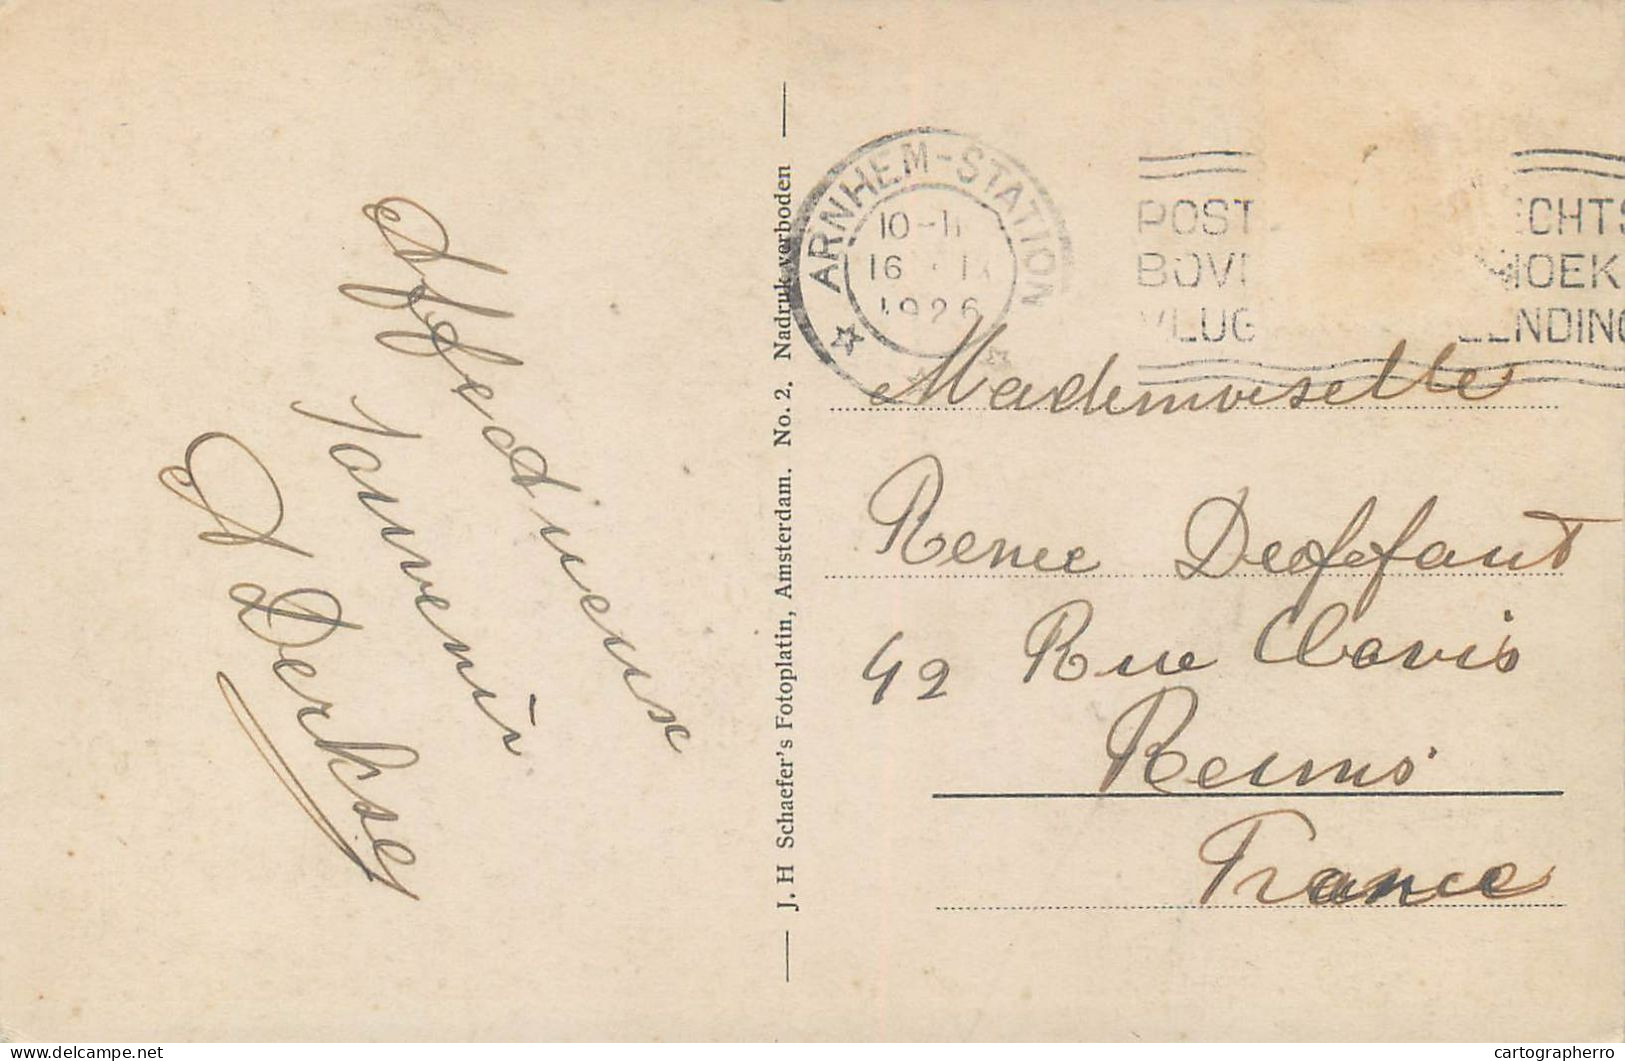 Affectueux
Souvenir
A Derksen
J. H Schaefer's Fotoplatin, Amsterdam. No. 2. Nadruk verboden
ARNHEM-STATION
10-11
16
1926
POST ECHTS
BOV HOEK
VLUG ENDING
Mademoiselle
Renee Deffaut
42 Rue Clovis
Reims
France
cartographerro